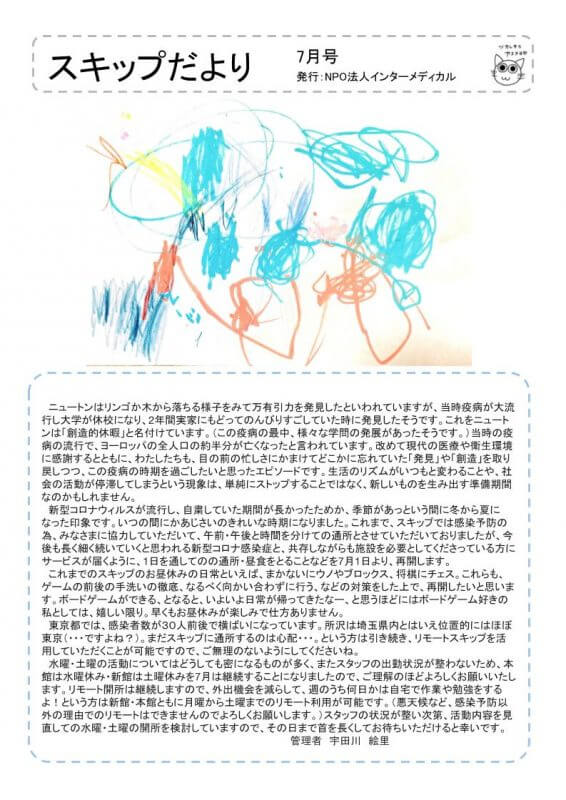 スキップだより
7月号
発行：NPO法人インターメディカル
ニュートンはリンゴが木から落ちる様子をみて万有引力を発見したといわれていますが、当時疫病が大流
行し大学が休校になり、2年間実家にもどってのんびりすごしていた時に発見したそうです。これをニュート
ンは「創造的休暇」と名付けています。（この疫病の最中、様々な学問の発展があったそうです。）当時の疫
病の流行で、ヨーロッパの全人口の約半分が亡くなったと言われています。改めて現代の医療や衛生環境
に感謝するとともに、わたしたちも、目の前の忙しさにかまけてどこかに忘れていた「発見」や「創造」を取り
戻しつつ、この疫病の時期を過ごしたいと思ったエピソードです。生活のリズムがいつもと変わることや、社
会の活動が停滞してしまうという現象は、単純にストップすることではなく、新しいものを生み出す準備期間
なのかもしれません。
新型コロナウィルスが流行し、自粛していた期間が長かったためか、季節があっという間に冬から夏に
なった印象です。いつの間にかあじさいのきれいな時期になりました。これまで、スキップでは感染予防の
為、みなさまに協力していただいて、午前・午後と時間を分けての通所とさせていただいておりましたが、今
後も長く細く続いていくと思われる新型コロナ感染症と、共存しながらも施設を必要としてくださっている方に
サービスが届くように、1日を通しての通所・昼食をとることなどを7月1日より、再開します。
これまでのスキップのお昼休みの日常といえば、まかないにウノやブロックス、将棋にチェス。これらも、
ゲームの前後の手洗いの徹底、なるべく向かい合わずに行う、などの対策をした上で、再開したいと思いま
す。ボードゲームができる、となると、いよいよ日常が帰ってきたなー、と思うほどにはボードゲーム好きの
私としては、嬉しい限り。早くもお昼休みが楽しみで仕方ありません。
東京都では、感染者数が30人前後で横ばいになっています。所沢は埼玉県内とはいえ位置的にはほぼ
東京（・・・ですよね？）。まだスキップに通所するのは心配・・・。という方は引き続き、リモートスキップを活
用していただくことが可能ですので、ご無理のないようにしてくださいね。
水曜・土曜の活動についてはどうしても密になるものが多く、またスタッフの出勤状況が整わないため、本
館は水曜休み・新館は土曜休みを7月は継続することになりましたので、ご理解のほどよろしくお願いいたし
ます。リモート開所は継続しますので、外出機会を減らして、週のうち何日かは自宅で作業や勉強をする
よ！という方は新館・本館ともに月曜から土曜までのリモート利用が可能です。（悪天候など、感染予防以
外の理由でのリモートはできませんのでよろしくお願いします。）スタッフの状況が整い次第、活動内容を見
直しての水曜・土曜の開所を検討していますので、その日まで首を長くしてお待ちいただけると幸いです。
管理者　宇田川　絵里